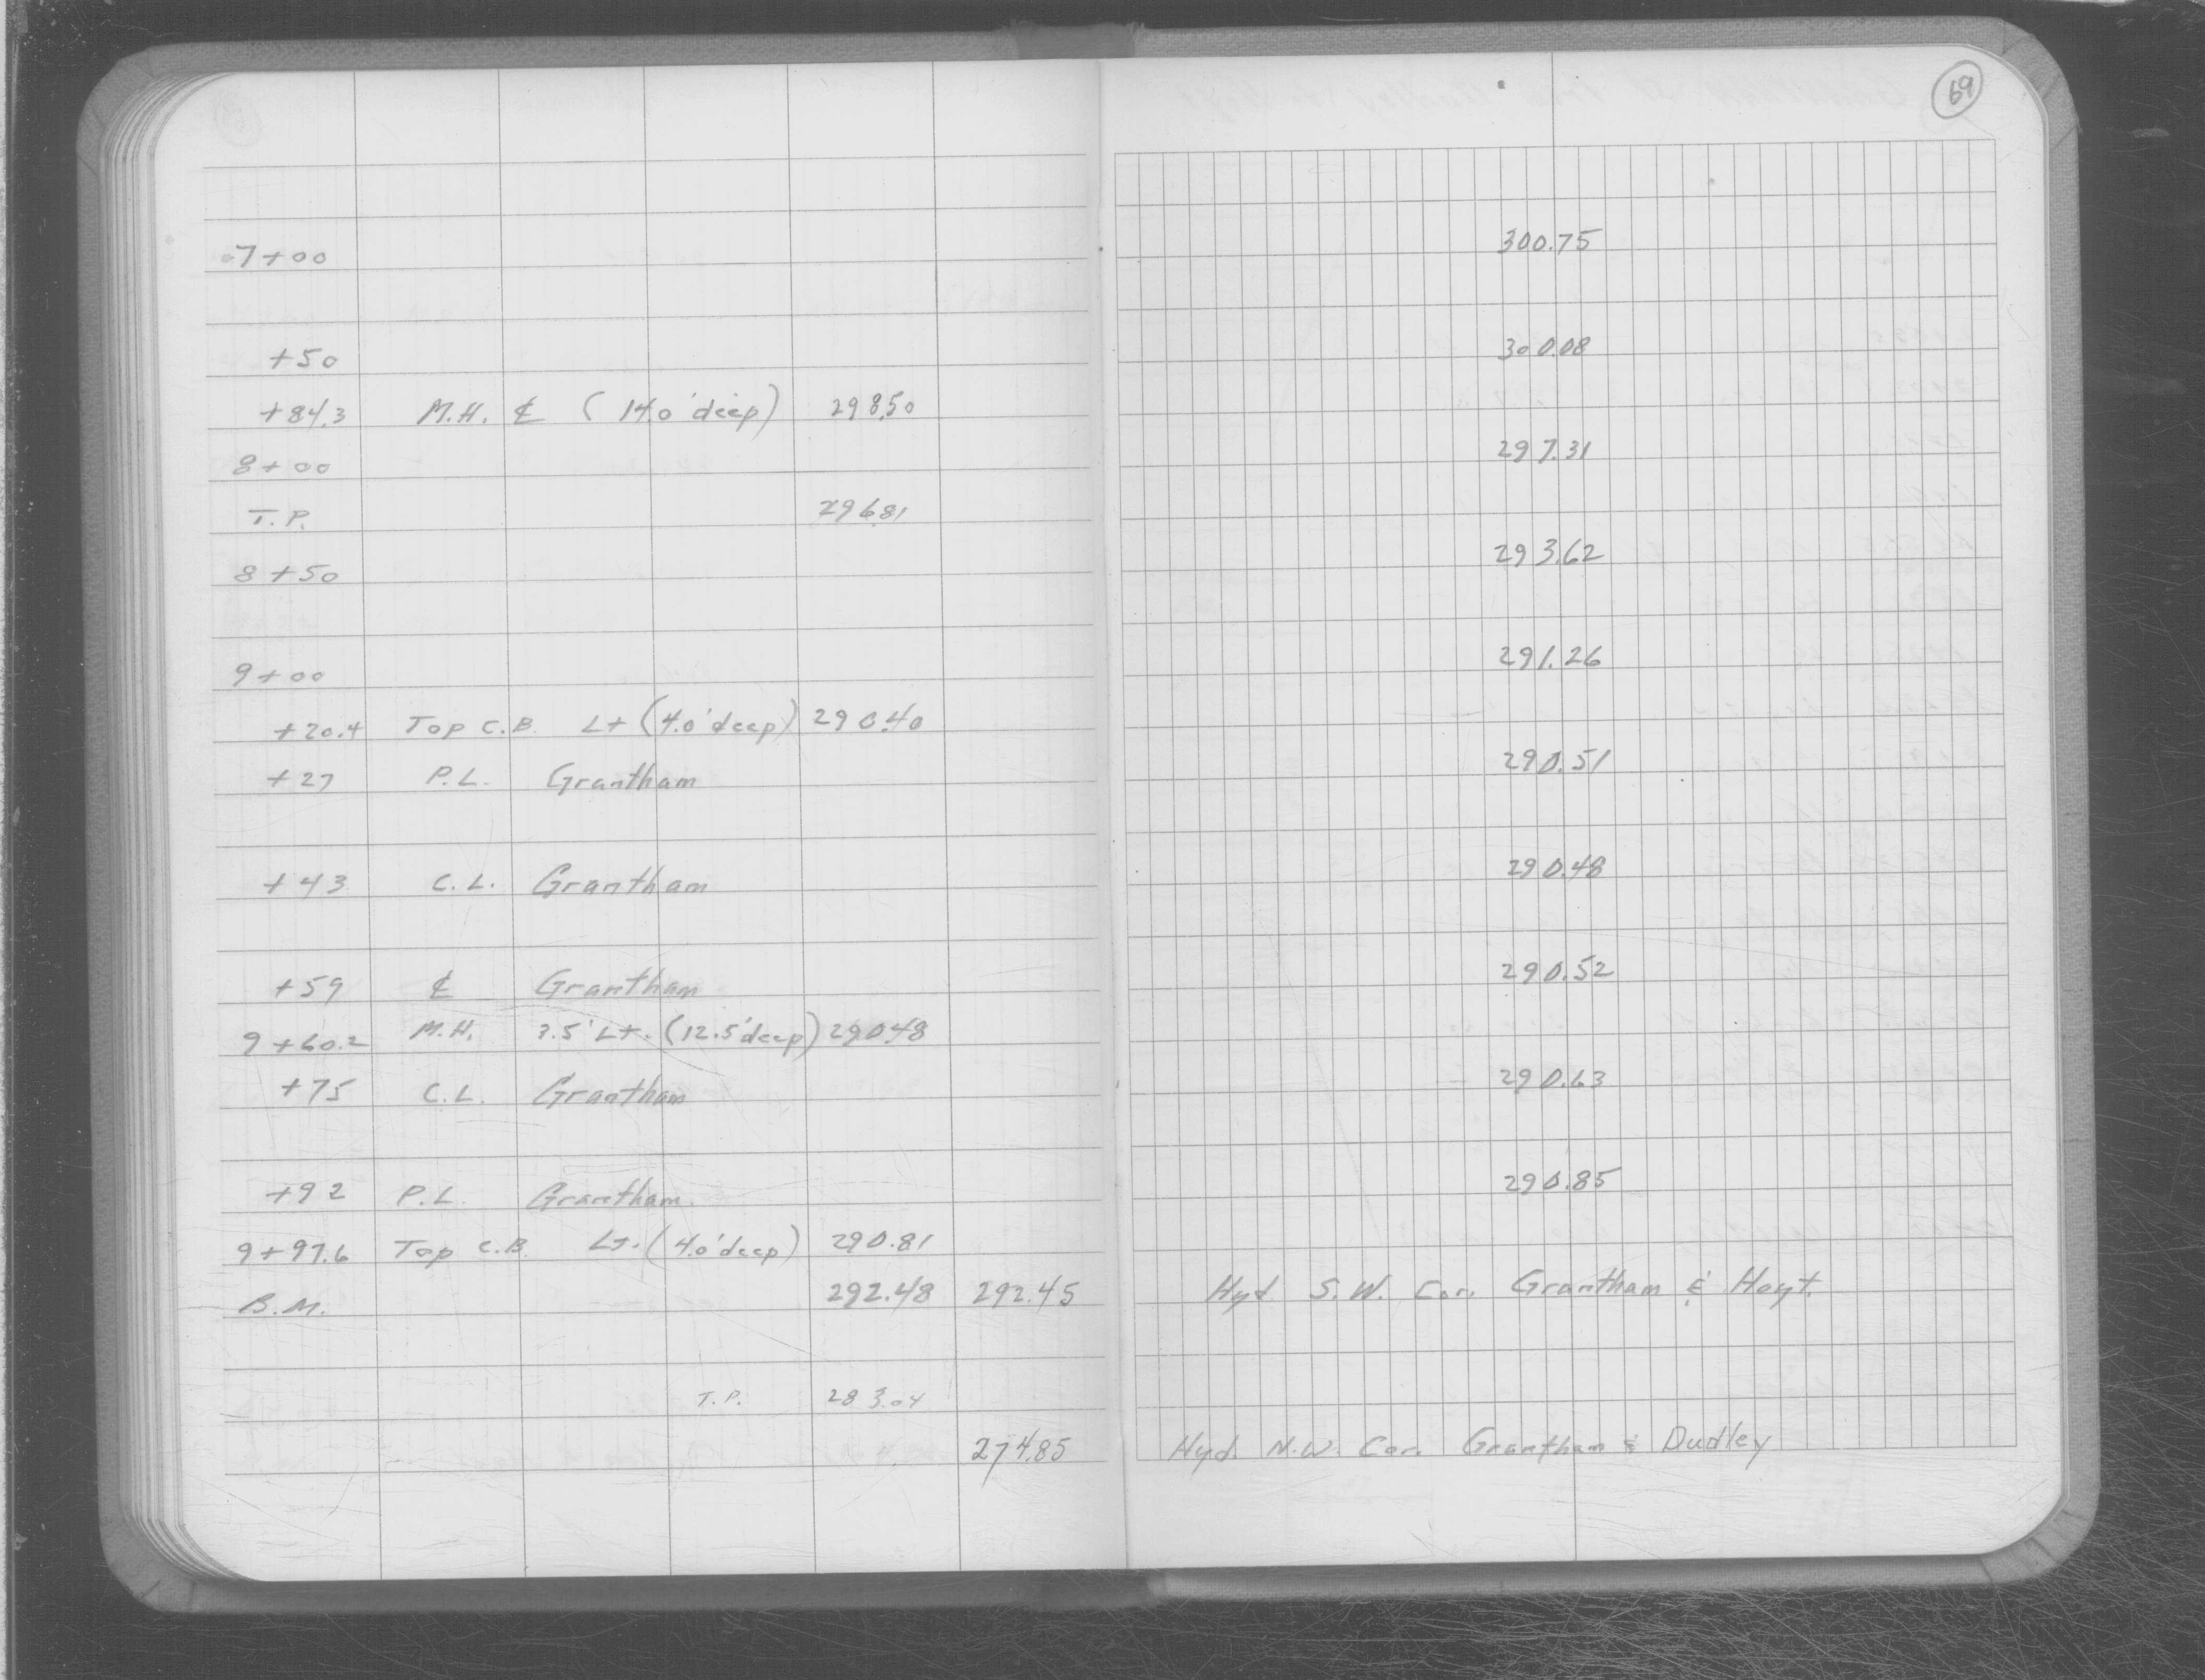 69
7+00 300.75
+50 300.08
+84.3 M.H. ℄ (14.0' deep) 298.50
8+00 297.31
T.P. 296.81
8+50 293.62
9+00 291.26
+20.4 Top C.B. Lt (4.0' deep) 290.40
+27 P.L. Grantham 290.51
+43 C.L. Grantham 290.48
+59 ℄ Grantham 290.52
9+60.2 M.H. 3.5' Lt. (12.5' deep) 290.48
+75 C.L. Grantham 290.63
+92 P.L. Grantham. 290.85
9+97.6 Top C.B. Lt. (4.0' deep) 290.81
B.M. 292.48 292.45 Hyd S.W. Cor. Grantham & Hoyt.
T.P. 283.04
274.85 Hyd. N.W. Cor. Grantham & Dudley